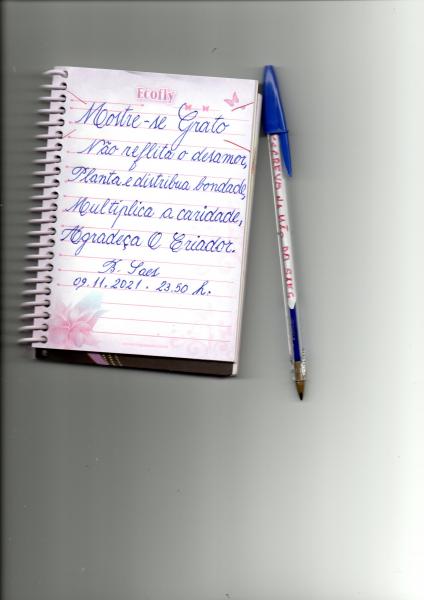 Ecofly
Mostre-se Grato
Não reflita o desamor,
Planta e distribua bondade,
Multiplica a caridade,
Agradeça O Criador.
K. Saes
09.11.2021 - 23.50 h.